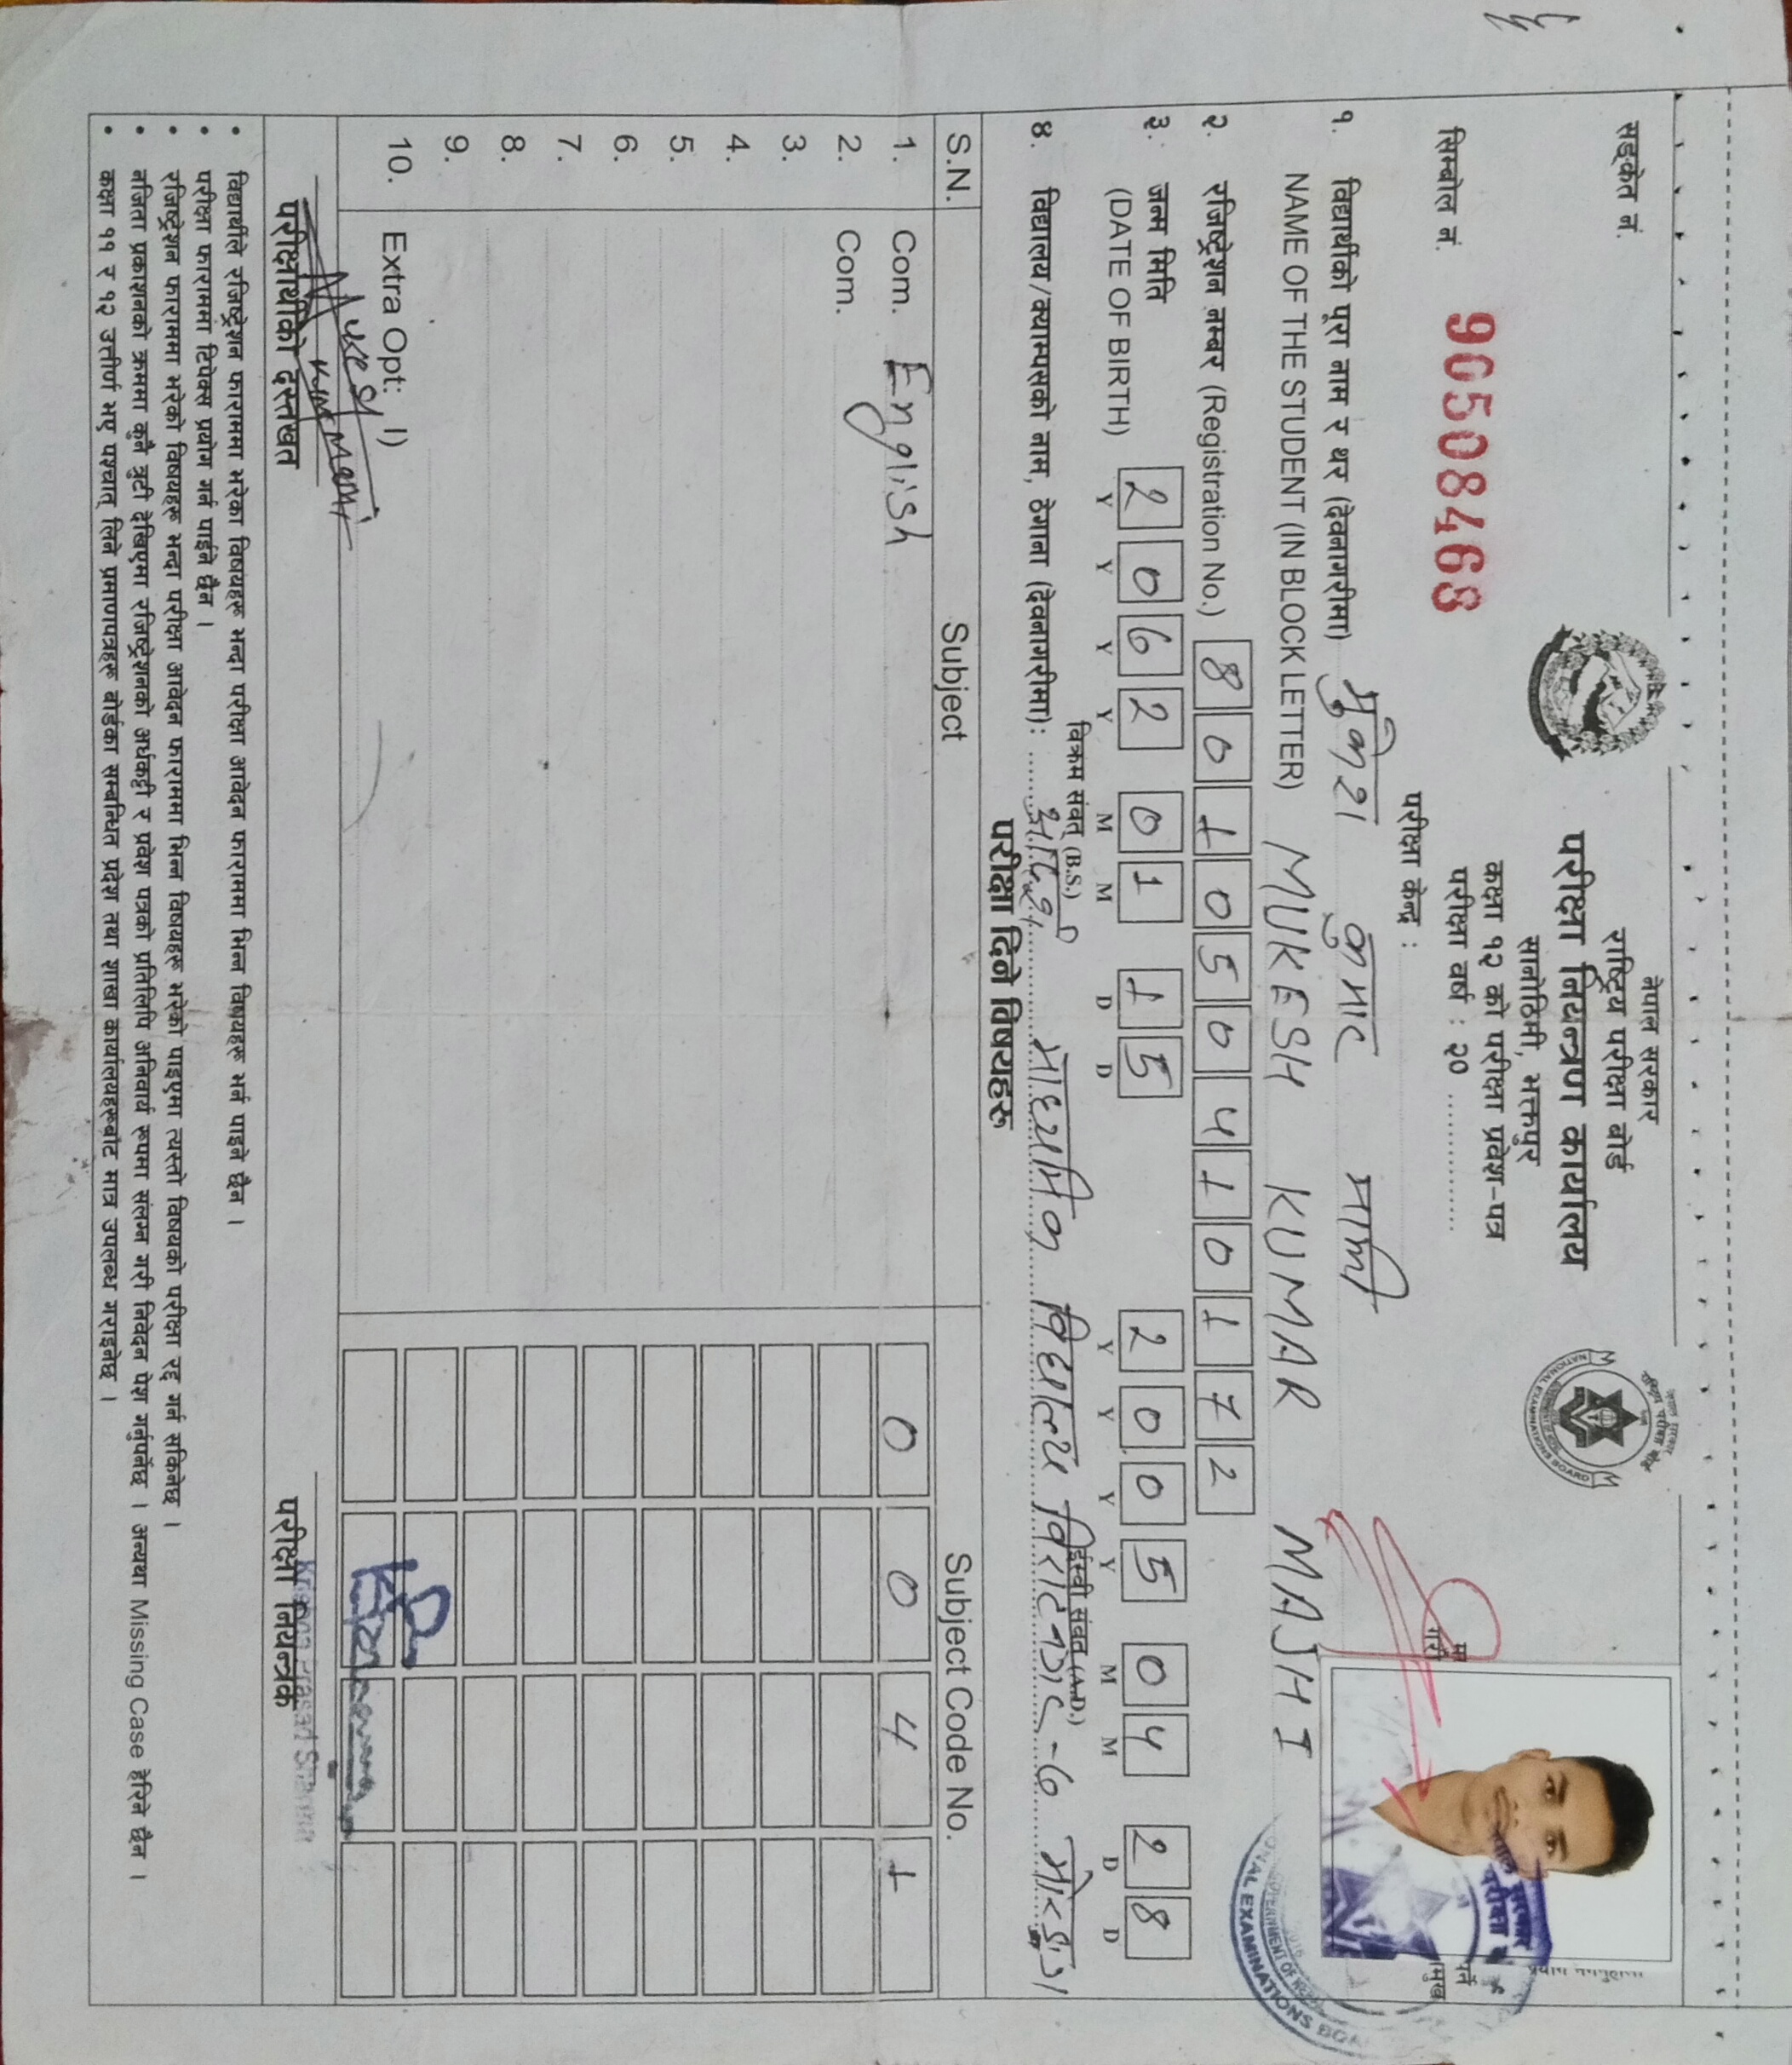 सङ्केत नं.
नेपाल सरकार
राष्ट्रिय परीक्षा बोर्ड
परीक्षा नियन्त्रण कार्यालय
सानोठिमी, भक्तपुर
कक्षा १२ को परीक्षा प्रवेश-पत्र
परीक्षा वर्ष : २० ...............
सिम्बोल नं. 90508468
परीक्षा केन्द्र :
नेपाल सरकार
राष्ट्रिय परीक्षा बोर्ड
NATIONAL EXAMINATIONS BOARD
नेपाल सरकार
परीक्षा
GOVERNMENT OF NEPAL
NAL EXAMINATIONS BOA
१. विद्यार्थीको पूरा नाम र थर (देवनागरीमा) मुकेश कुमार माझी
NAME OF THE STUDENT (IN BLOCK LETTER) MUKESH KUMAR MAJHI
२. रजिष्ट्रेशन नम्बर (Registration No.) 8 0 1 0 5 0 4 1 0 1 7 2
३. जन्म मिति 2 0 6 2 0 1 1 5 2 0 0 5 0 4 2 8
(DATE OF BIRTH) Y Y Y Y M M D D Y Y Y Y M M D D
विक्रम संवत् (B.S.) ईस्वी संवत् (A.D.)
४. विद्यालय/क्याम्पसको नाम, ठेगाना (देवनागरीमा): आदर्श माध्यमिक विद्यालय विराटनगर-७ मोरङ्ग
परीक्षा दिने विषयहरू
S.N. Subject Subject Code No.
1. Com. English 0 0 4 1
2. Com.
3.
4.
5.
6.
7.
8.
9.
10. Extra Opt: I)
Krishna Prasad Sharma
परीक्षार्थीको दस्तखत परीक्षा नियन्त्रक
• विद्यार्थीले रजिष्ट्रेशन फाराममा भरेका विषयहरू भन्दा परीक्षा आवेदन फाराममा भिन्न विषयहरू भर्न पाइने छैन ।
• परीक्षा फाराममा टिपेक्स प्रयोग गर्न पाईने छैन ।
• रजिष्ट्रेशन फाराममा भरेको विषयहरू भन्दा परीक्षा आवेदन फाराममा भिन्न विषयहरू भरेको पाइएमा त्यस्तो विषयको परीक्षा रद्द गर्न सकिनेछ ।
• नजिता प्रकाशनको क्रममा कुनै त्रुटी देखिएमा रजिष्ट्रेशनको अर्धकट्टी र प्रवेश पत्रको प्रतिलिपि अनिवार्य रूपमा संलग्न गरी निवेदन पेश गर्नुपर्नेछ । अन्यथा Missing Case हेरिने छैन ।
• कक्षा ११ र १२ उत्तीर्ण भए पश्चात् लिने प्रमाणपत्रहरू बोर्डका सम्बन्धित प्रदेश तथा शाखा कार्यालयहरूबाट मात्र उपलब्ध गराइनेछ ।